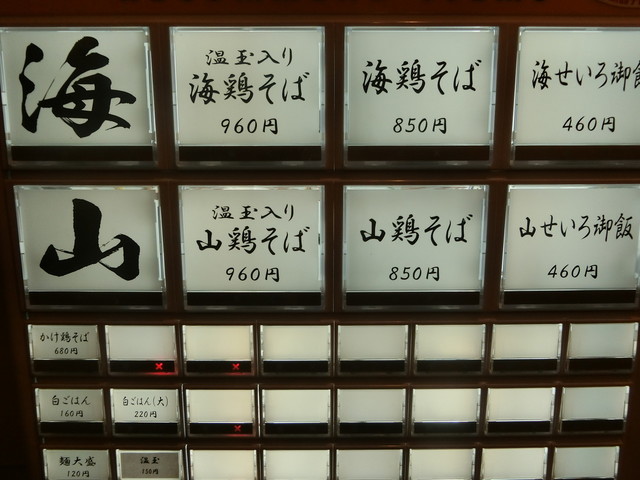 海
温玉入り
海鶏そば
960円
海鶏そば
850円
海せいろ御飯
460円
山
温玉入り
山鶏そば
960円
山鶏そば
850円
山せいろ御飯
460円
かけ鶏そば
680円
白ごはん
160円
白ごはん(大)
220円
麺大盛
120円
温玉
110円